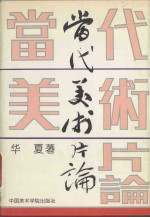 當代
美術
片論
當代美术片論
华 夏著
中国美术学院出版社